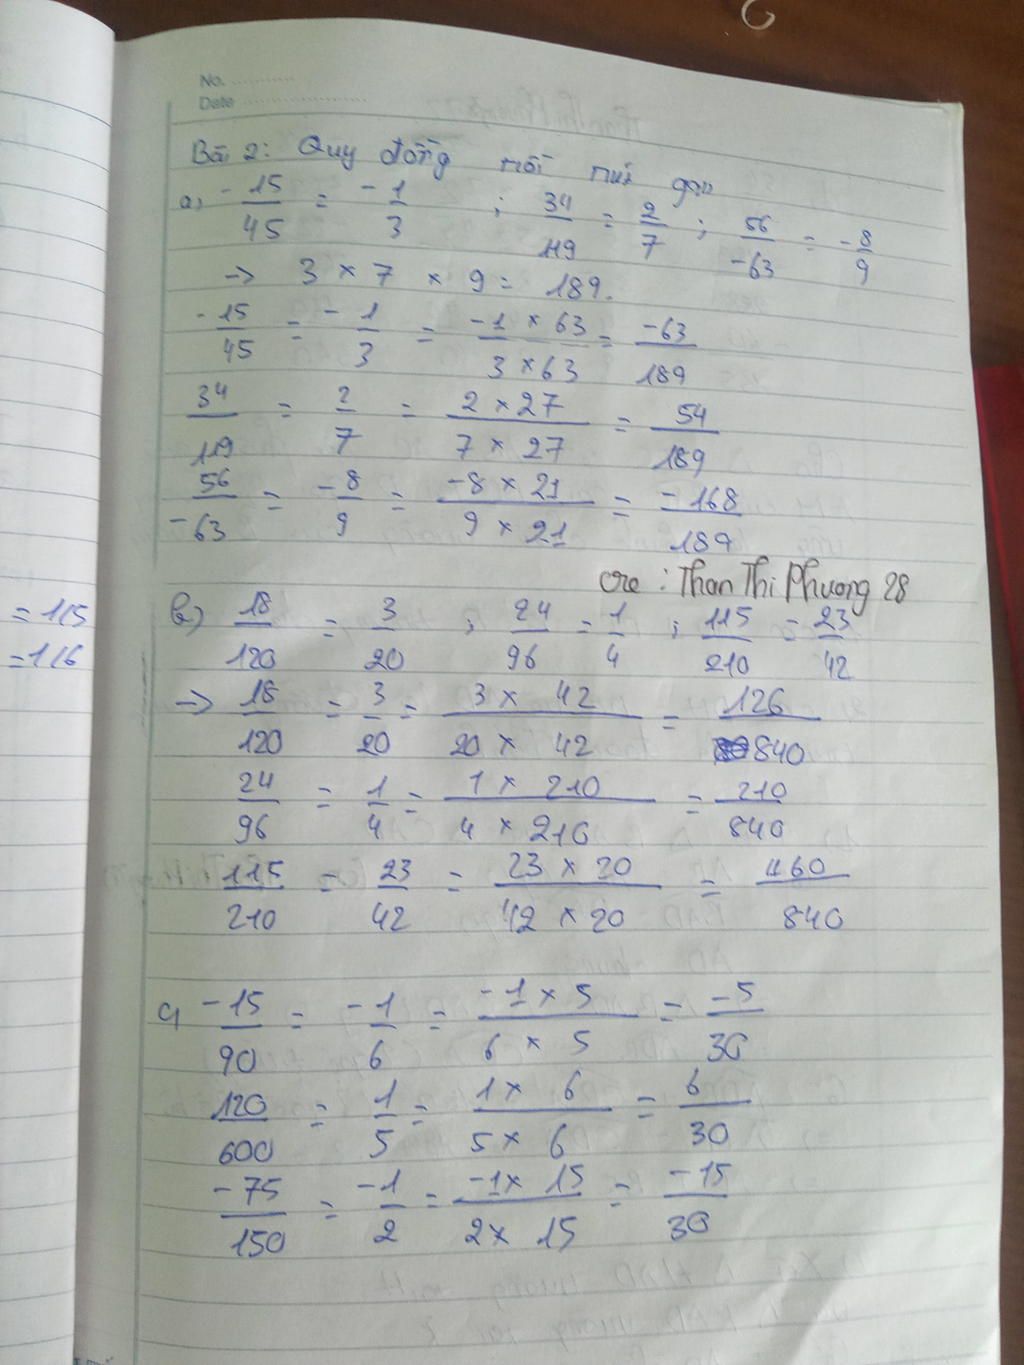 No.
Date
Bài 2: Quy đồng rồi rút gọn
a, -15/45 = -1/3 ; 34/119 = 2/7 ; 56/-63 = -8/9
-> 3 × 7 × 9 = 189.
-15/45 = -1/3 = -1 × 63/3 × 63 = -63/189
34/119 = 2/7 = 2 × 27/7 × 27 = 54/189
56/-63 = -8/9 = -8 × 21/9 × 21 = -168/189
cre : Than Thi Phuong 28
= 115
= 116
b) 18/120 = 3/20 ; 24/96 = 1/4 ; 115/210 = 23/42
-> 18/120 = 3/20 = 3 × 42/20 × 42 = 126/840
24/96 = 1/4 = 1 × 210/4 × 210 = 210/840
115/210 = 23/42 = 23 × 20/42 × 20 = 460/840
c, -15/90 = -1/6 = -1 × 5/6 × 5 = -5/30
120/600 = 1/5 = 1 × 6/5 × 6 = 6/30
-75/150 = -1/2 = -1 × 15/2 × 15 = -15/30